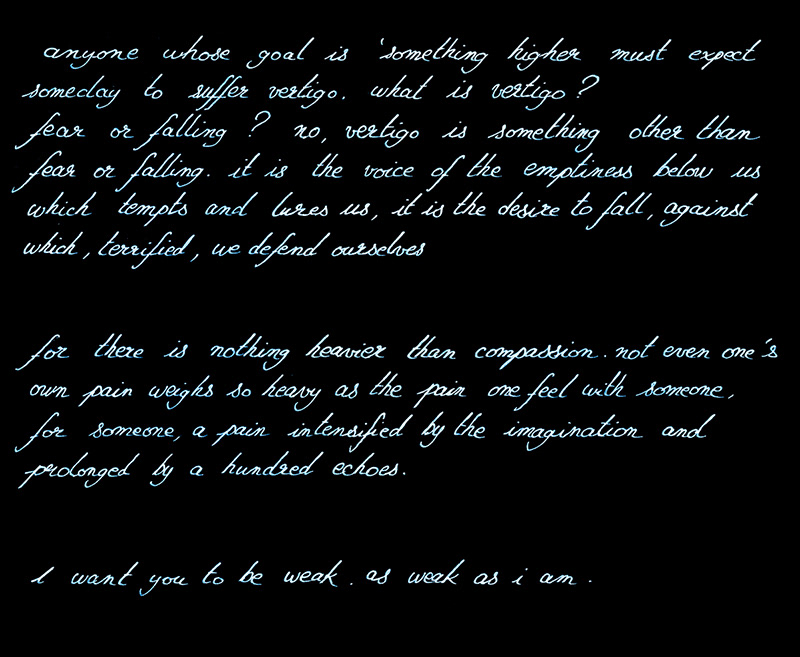 anyone whose goal is 'something higher must expect
someday to suffer vertigo. what is vertigo?
fear or falling? no, vertigo is something other than
fear or falling. it is the voice of the emptiness below us
which tempts and lures us, it is the desire to fall, against
which, terrified, we defend ourselves
for there is nothing heavier than compassion. not even one's
own pain weighs so heavy as the pain one feel with someone,
for someone, a pain intensified by the imagination and
prolonged by a hundred echoes.
i want you to be weak. as weak as i am.